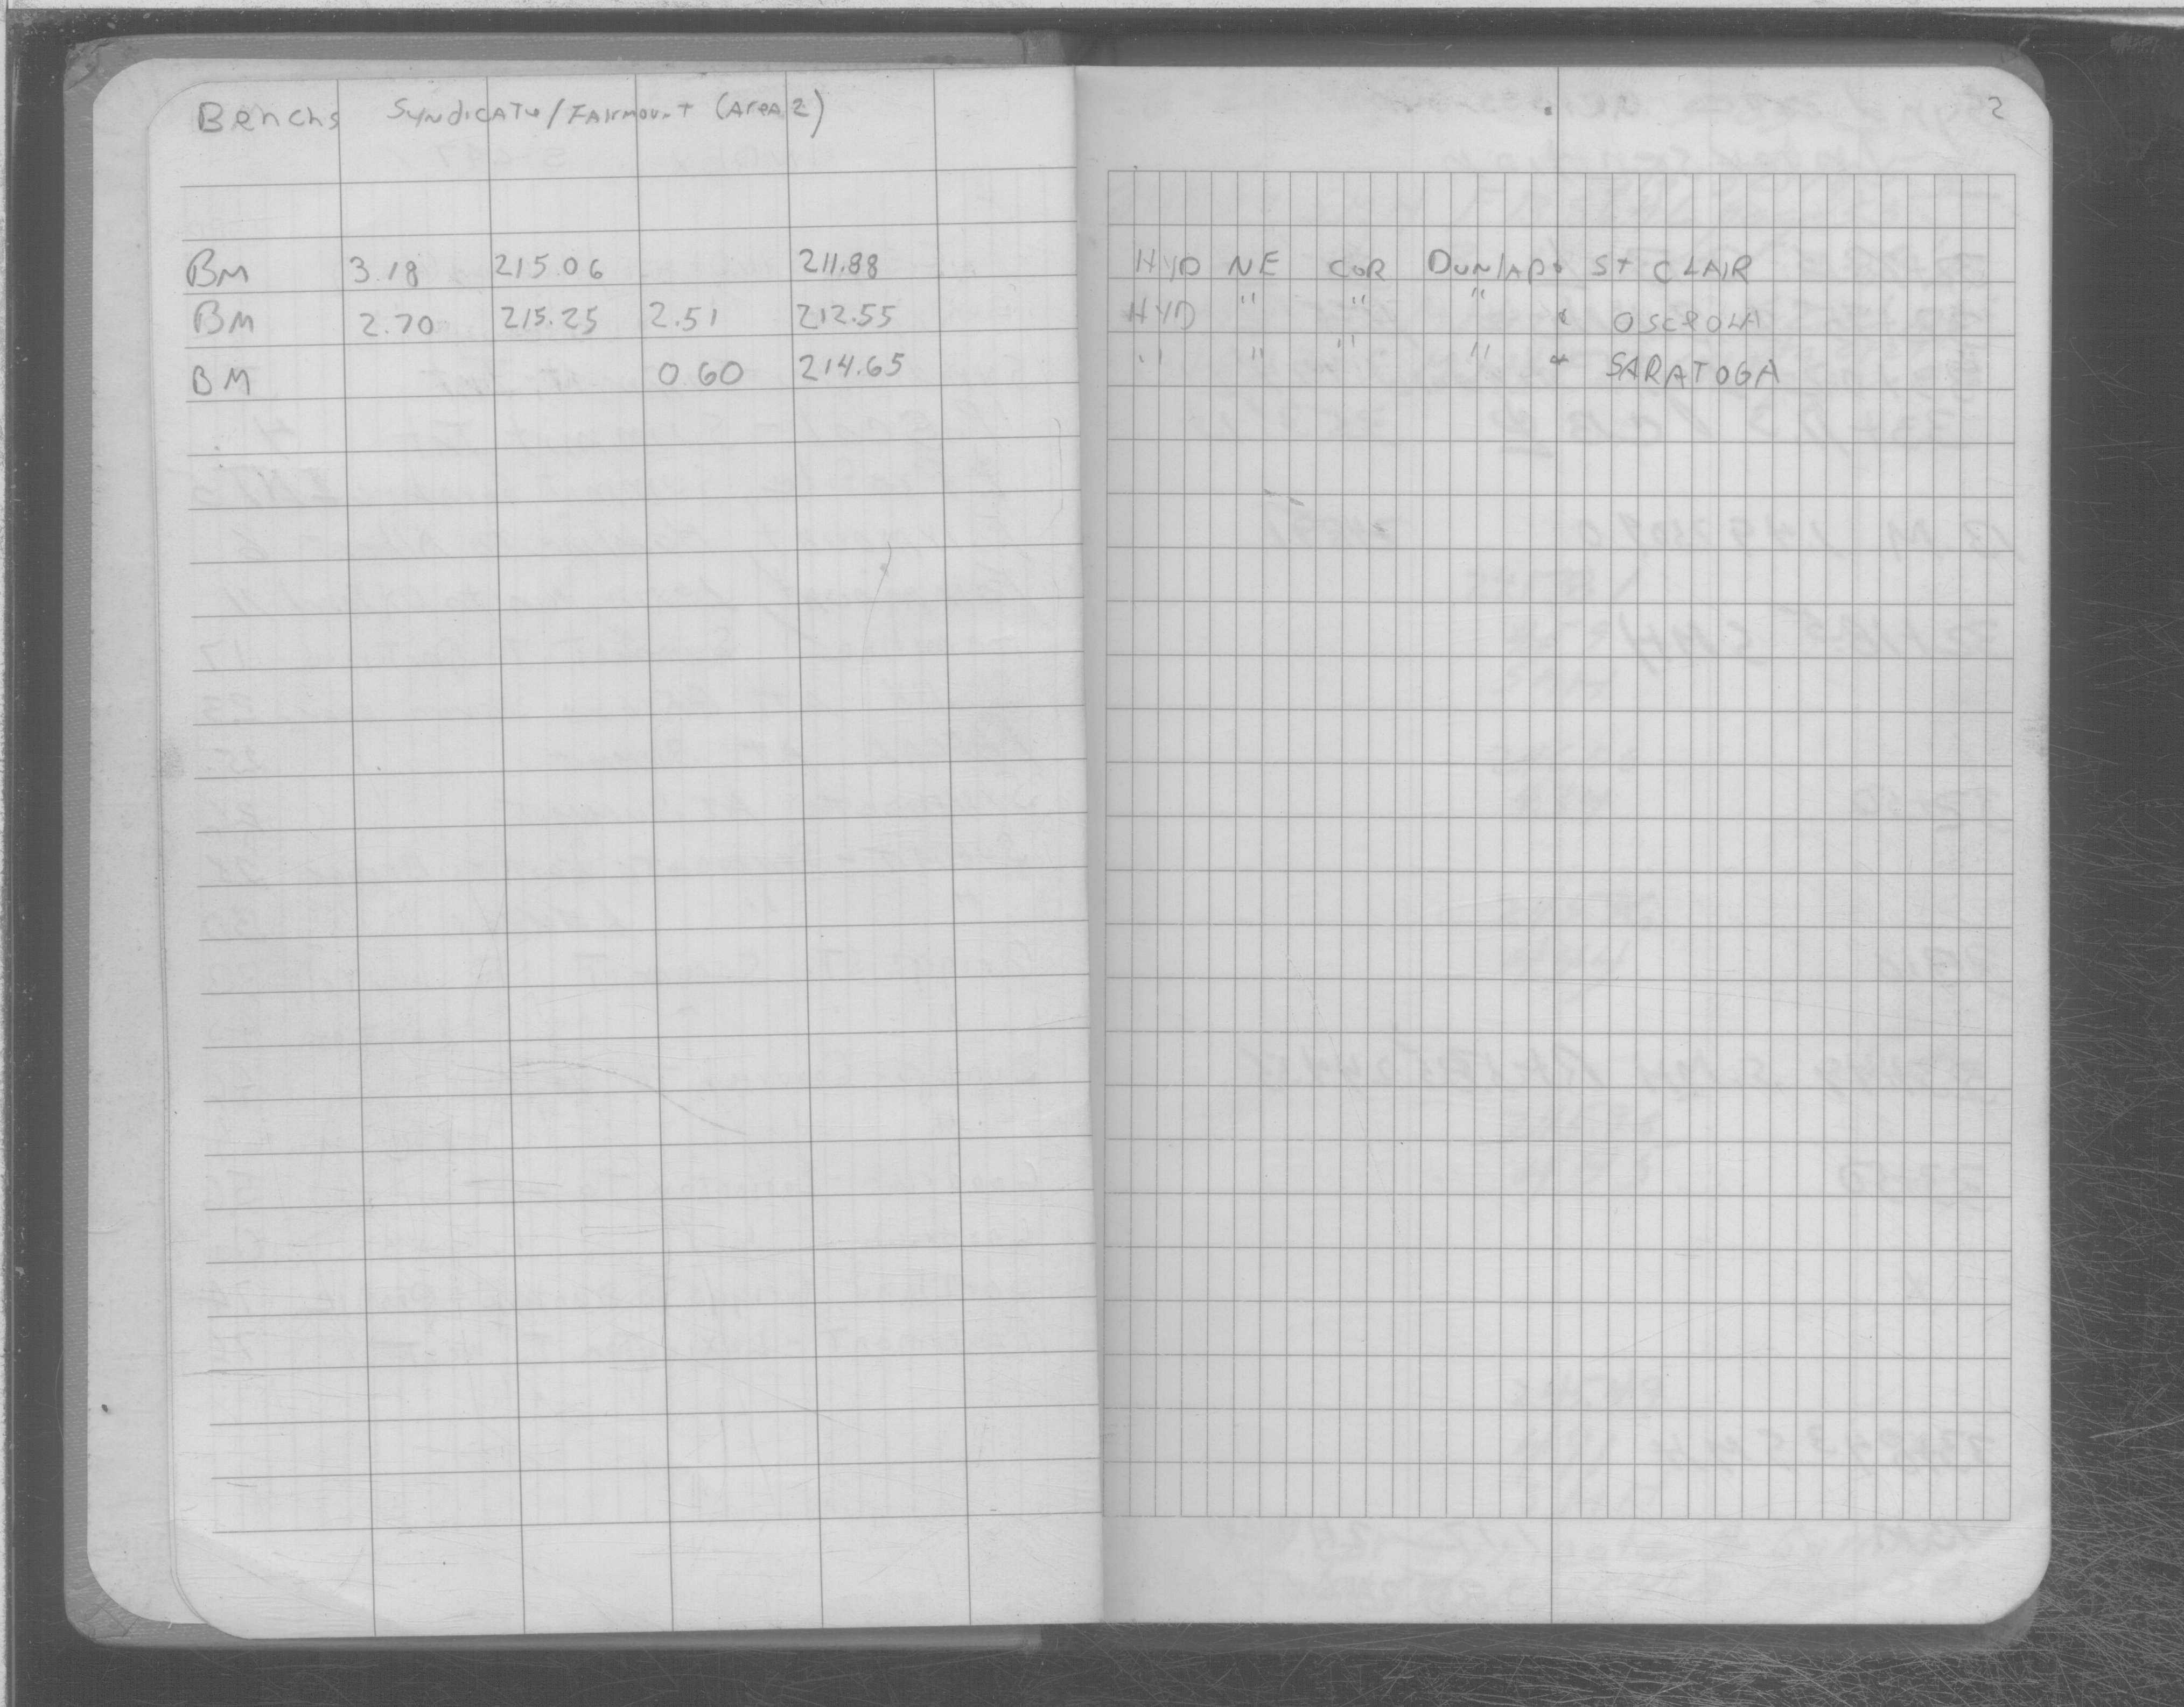 Benchs Syndicate/Fairmount (Area 2)
2
BM 3.18 215.06 211.88 HYD NE COR Dunlap & St CLAIR
BM 2.70 215.25 2.51 212.55 HYD " " " & OSCEOLA
BM 0.60 214.65 " " " " & SARATOGA